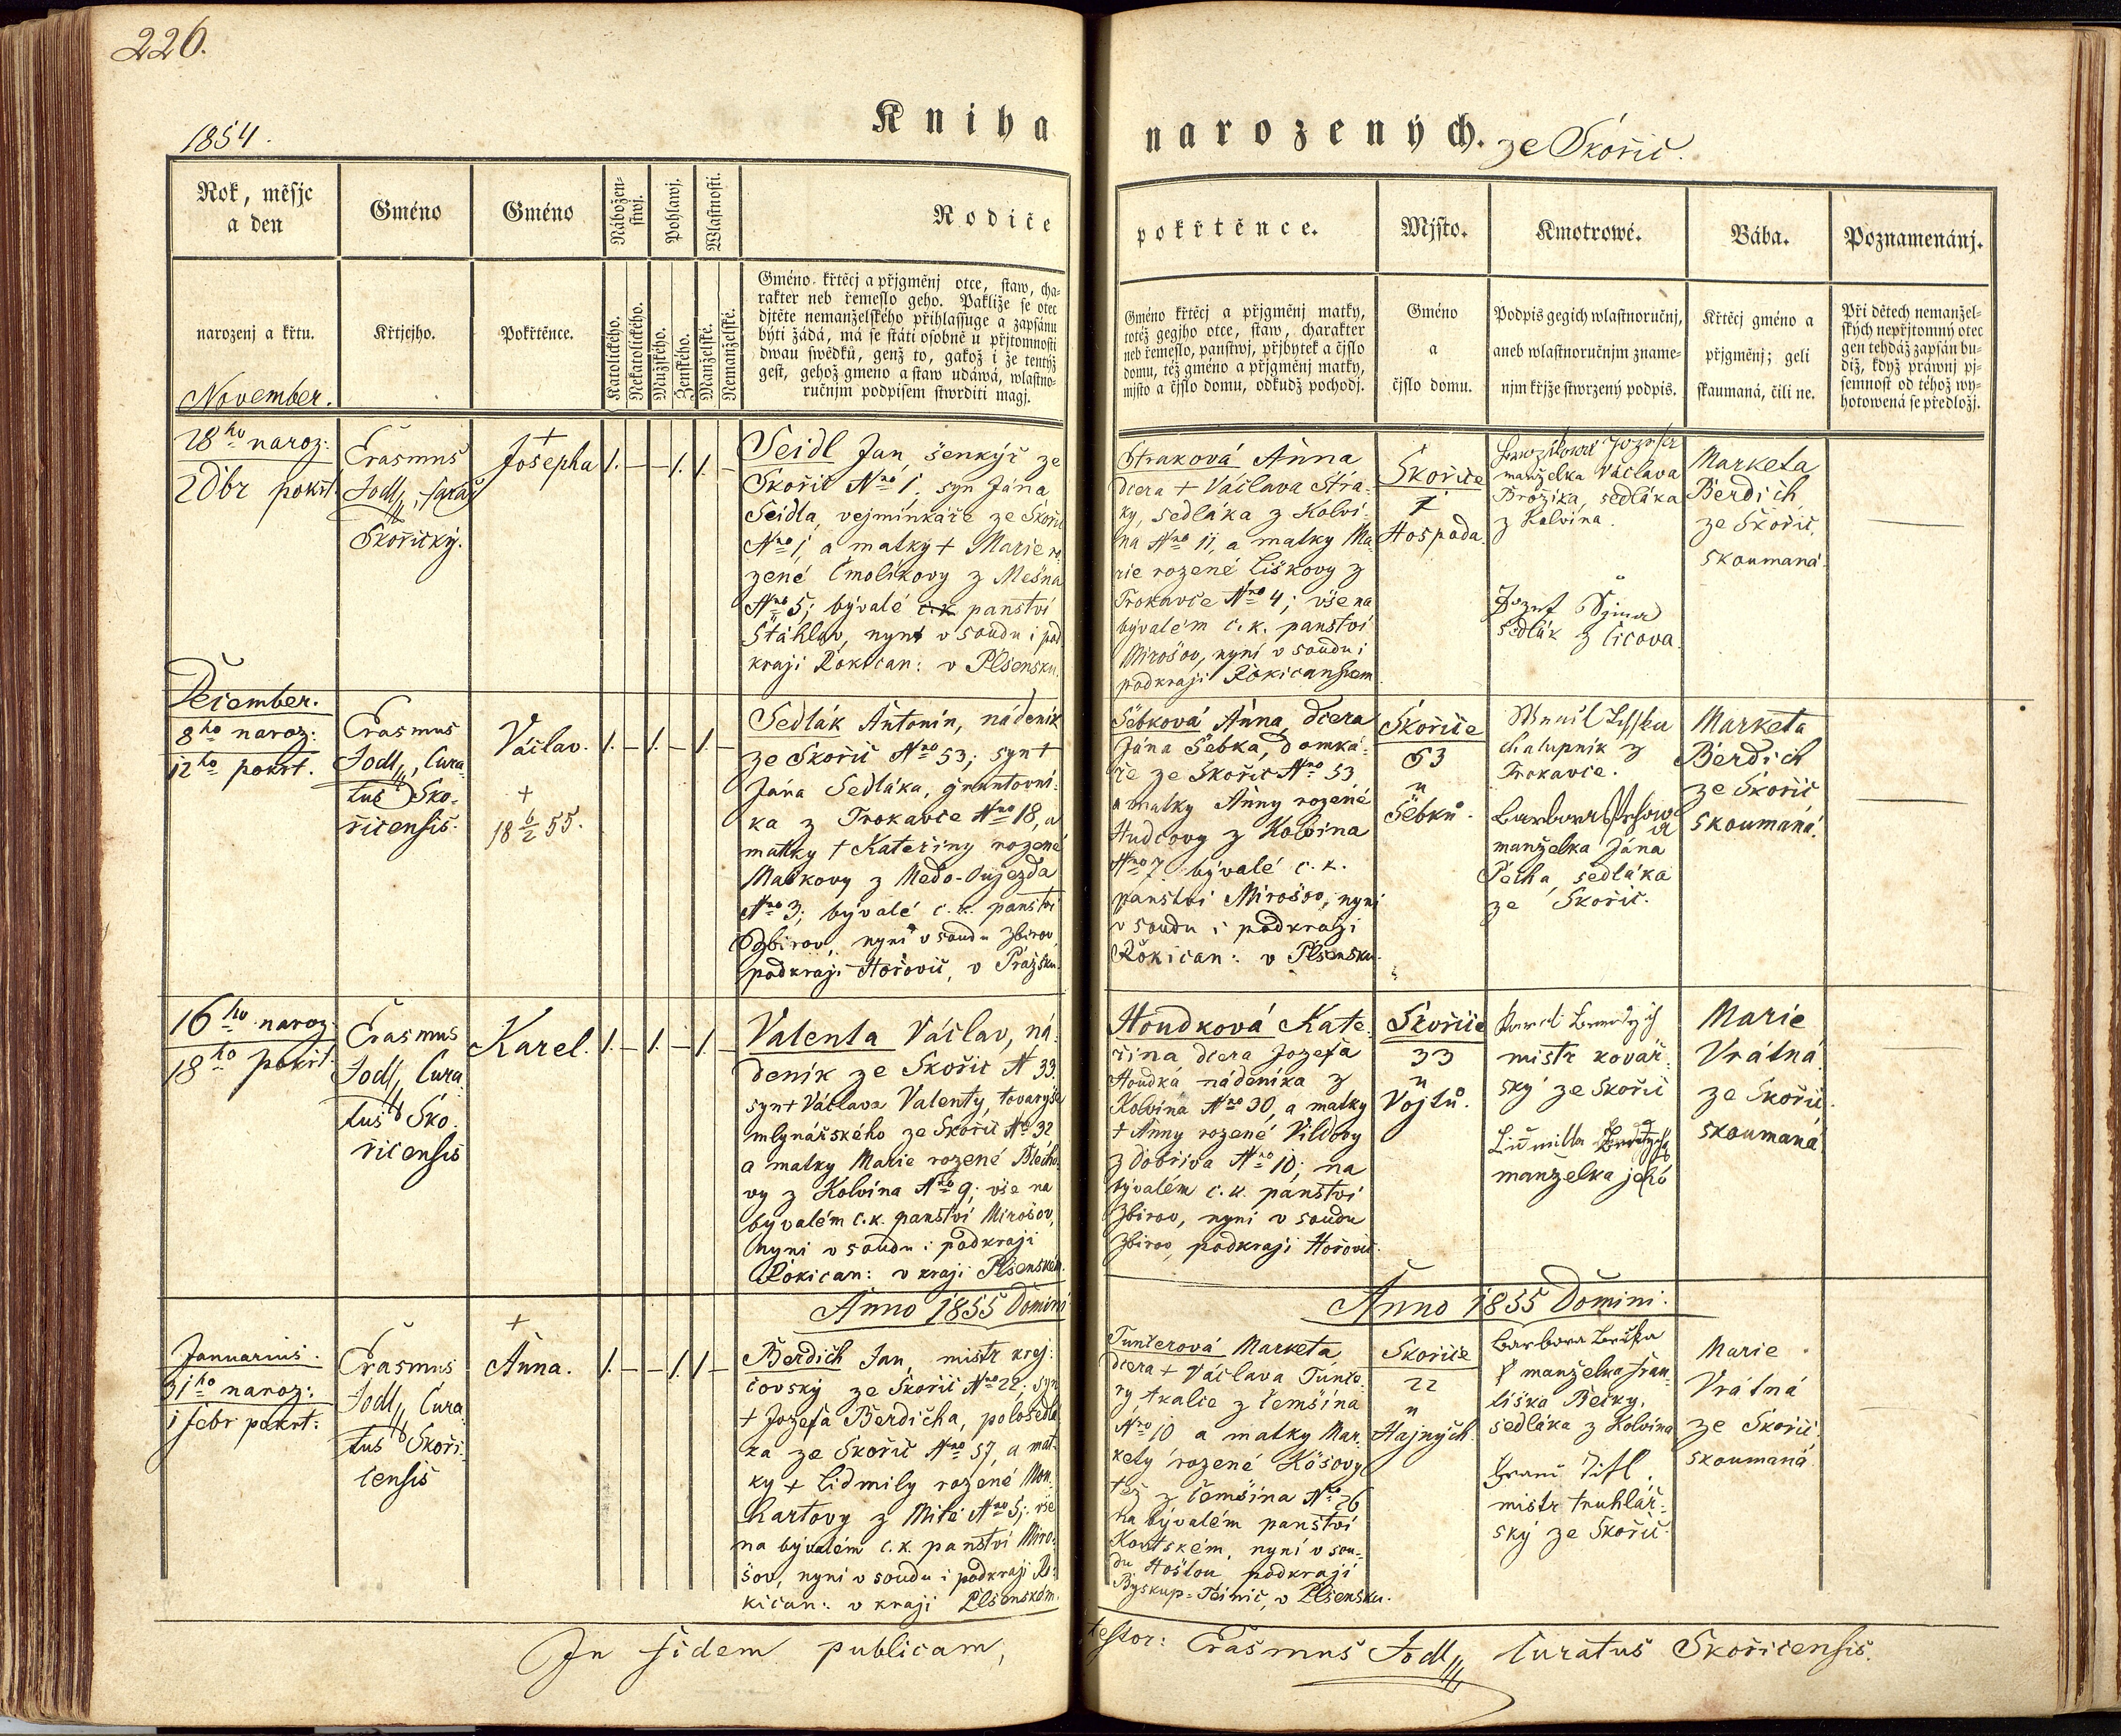 226.
1854.
Kniha
narozených. ze Skořic.
Rok, měsjc
a den
Gméno
Gméno
Nábožen-
stwj.
Pohlawj.
Wlastnosti.
Rodiče
pokřtěnce.
Mjsto.
Kmotrowé.
Bába.
Poznamenánj.
narozenj a křtu.
Křtjcjho.
Pokřtěnce.
Katolického.
Nekatolického.
Mužského.
Ženského.
Manželské.
Nemanželské.
Gméno křtěcj a přjgměnj otce, staw, cha-
rakter neb řemeslo geho. Pakliže se otec
djtěte nemanželského přihlassuge a zapsánu
býti žádá, má se státi osobně u přjtomnosti
dwau swědků, genž to, gakož i že tentýž
gest, gehož gméno a staw udáwá, wlastno-
ručnjm podpisem stwrditi magj.
Gméno křtěcj a přjgměnj matky,
totéž gegjho otce, staw, charakter
neb řemeslo, panstwj, přjbytek a čjslo
domu, též gméno a přjgměnj matky,
mjsto a čjslo domu, odkudž pocházj.
Gméno
a
čjslo domu.
Podpis gegich wlastnoručnj,
aneb wlastnoručnjm zname-
njm křjže stwrzený podpis.
Křtěcj gméno a
přjgměnj; geli
skaumaná, čili ne.
Při dětech nemanžel-
ských nepřjtomný otec
gen tehdáž zapsán bu-
diž, když práwnj pj-
semnost od téhož wy-
hotowená se předložj.
November.
28ho naroz:
2 Dbr pokřt.
Erasmus
Jodl, farář
Skořický.
+
Josepha
1. — — 1. 1. —
Seidl Jan, šenkýř ze
Skořic Nro 1, syn Jána
Seidla, vejminkáře ze Skořic
Nro 1, a matky + Marie ro
zené Čmolíkovy z Mešna
Nro 5; bývalé c.k. panství
Štáhlav, nyní v soudu i pod
kraji Rokican: v Plsensku.
Straková Anna
dcera + Václava Stra-
ky, sedláka z Kolvi-
na Nro 11, a matky Ma-
rie rozené Liškovy z
Trokavce Nro 4; vše na
bývalém c.k. panství
Mirošov, nyní v soudu i
podkraji Rokicanskem
Skořice
1
Hospoda.
manželka Václava
Brožika, sedláka
z Kolvina.
Jozef
sedlák z Číčova
Marketa
Berdich
ze Skořic.
skoumaná.
December.
8ho naroz:
12ho pokřt.
Erasmus
Jodl, Cura
tus Sko-
řicensis.
Václav.
+
18 6/2 55.
1. — 1. — 1. —
Sedlák Antonin, nádeník
ze Skořic Nro 53; syn +
Jána Sedláka, gruntovní-
ka z Trokavce Nro 18, a
matky + Kateřiny rozené
Maškovy z Medo-Oujezda
Nro 3; bývalé c.k. panství
Zbirov, nyní v soudu Zbirov
podkraji Hořovic, v Pražsku.
Šebková Anna, dcera
Jána Šebka, domká-
ře ze Skořic Nro 53
a matky Anny rozené
Hudcovy z Kolvina
Nro 7 bývalé c.k.
panství Mirošov, nyní
v soudu i podkraji
Rokican: v Plsensku.
Skořice
53
u
Šebků.
chalupník z
Trokavce.
Barbora
manželka Jána
Pecha, sedláka
ze Skořic.
Marketa
Berdich
ze Skořic
skoumaná.
16ho naroz.
18ho pokřt.
Erasmus
Jodl, Cura
tus Sko
řicensis
Karel.
1. — 1. — 1. —
Valenta Václav, ná-
deník ze Skořic N 33.
syn + Václava Valenty, tovaryše
mlynářského ze Skořic Nro 32
a matky Marie rozené Blecho
vy z Kolvína Nro 9; vše na
byvalém c.k. panství Mirošov,
nyní v soudu i podkraji
Rokican: v kraji Plsenském.
Houdková Kate-
řina dcera Jozefa
Houdka nádeníka z
Kolvina Nro 30, a matky
+ Anny rozené Vildovy
z Dobřiva Nro 10; na
bývalém c.k. panství
Zbirov, nyní v soudu
Zbirov, podkraji Hořovic.
Skořice
33
u
Vojtů.
mistr kovář-
ský ze Skořic
Lidmilla
manželka jeho
Marie
Vrátná
ze Skořic.
skoumaná
Anno 1855 Domini
Anno 1855 Domini.
Januarius.
31ho naroz:
1 febr pokřt:
Erasmus
Jodl, Cura
tus Skoři-
censis
+
Anna.
1. — — 1. 1 —
Berdich Jan, mistr krej-
čovský ze Skořic Nro 22; syn
+ Jozefa Berdicha, polosedlá
ka ze Skořic Nro 57, a mat-
ky + Lidmily rozené Mon
hartovy z Mítě Nro 5; vše
na bývalém c.k. panství Miro-
šov, nyní v soudu i podkraji Ro-
kican: v kraji Plsenském.
Tunterová Marketa
dcera + Václava
ry, tkalce z Čemšína
Nro 10 a matky Mar-
kety rozené Kösovy
též z Čemšina Nro 26
na bývalém panství
Koutském, nyní v sou-
du Hostou podkraji
Byskup-Teinic, v Plsensku.
Skořice
22
u
Hajných.
Barbora
manželka Fran-
tiška Bečky,
sedláka z Kolvina
Franc Titl
mistr truhlář-
ský ze Skořic.
Marie
Vrátná
ze Skořic.
skoumaná
In fidem publicam,
testor: Erasmus Jodl, Curatus Skořicensis.